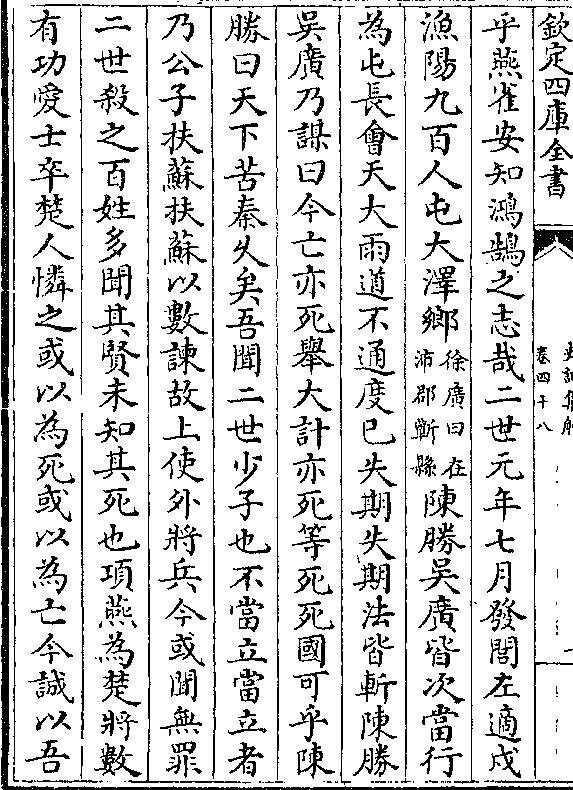 欽定四庫全書
卷四十八
乎燕雀安知鴻鵠之志哉二世元年七月發閭左適戍
漁陽九百人屯大澤鄉徐廣曰在沛郡蘄縣陳勝吳廣皆次當行
為屯長會天大雨道不通度已失期失期法皆斬陳勝
吳廣乃謀曰今亡亦死舉大計亦死等死死國可乎陳
勝曰天下苦秦久矣吾聞二世少子也不當立當立者
乃公子扶蘇扶蘇以數諫故上使外將兵今或聞無罪
二世殺之百姓多聞其賢未知其死也項燕為楚將數
有功愛士卒楚人憐之或以為死或以為亡今誠以吾